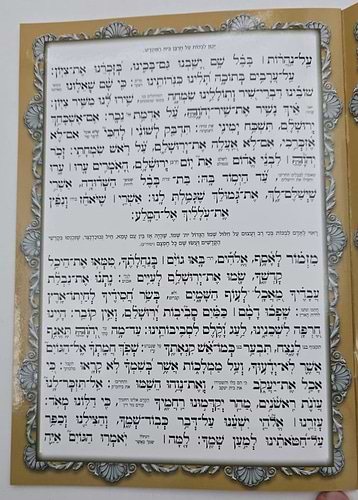 עַל־נַהֲרוֹת ׀ בָּבֶל שָׁם יָשַׁבְנוּ גַּם־בָּכִינוּ, בְּזָכְרֵנוּ אֶת־צִיּוֹן:
עַל־עֲרָבִים בְּתוֹכָהּ תָּלִינוּ כִּנֹּרוֹתֵינוּ: כִּי שָׁם שְׁאֵלוּנוּ
שׁוֹבֵינוּ דִּבְרֵי־שִׁיר וְתוֹלָלֵינוּ שִׂמְחָה, שִׁירוּ לָנוּ מִשִּׁיר צִיּוֹן:
אֵיךְ נָשִׁיר אֶת־שִׁיר־יְהֹוָה, עַל אַדְמַת־נֵכָר: אִם־אֶשְׁכָּחֵךְ
יְרוּשָׁלִָם, תִּשְׁכַּח יְמִינִי: תִּדְבַּק לְשׁוֹנִי ׀ לְחִכִּי אִם־לֹא
אֶזְכְּרֵכִי, אִם־לֹא אַעֲלֶה אֶת־יְרוּשָׁלִַם, עַל רֹאשׁ שִׂמְחָתִי: זְכֹר
יְהֹוָה ׀ לִבְנֵי אֱדוֹם אֵת יוֹם יְרוּשָׁלִָם, הָאֹמְרִים עָרוּ ׀ עָרוּ
עַד הַיְסוֹד בָּהּ: בַּת־בָּבֶל הַשְּׁדוּדָה, אַשְׁרֵי
שֶׁיְשַׁלֶּם־לָךְ, אֶת־גְּמוּלֵךְ שֶׁגָּמַלְתְּ לָנוּ: אַשְׁרֵי ׀ שֶׁיֹּאחֵז וְנִפֵּץ
אֶת־עֹלָלַיִךְ אֶל־הַסָּלַע:
מִזְמוֹר לְאָסָף, אֱלֹהִים, בָּאוּ גוֹיִם ׀ בְּנַחֲלָתֶךָ, טִמְּאוּ אֶת־הֵיכַל
קָדְשֶׁךָ, שָׂמוּ אֶת־יְרוּשָׁלִַם לְעִיִּים: נָתְנוּ אֶת־נִבְלַת
עֲבָדֶיךָ מַאֲכָל לְעוֹף הַשָּׁמָיִם, בְּשַׂר חֲסִידֶיךָ לְחַיְתוֹ־אָרֶץ:
שָׁפְכוּ דָמָם ׀ כַּמַּיִם סְבִיבוֹת יְרוּשָׁלִָם, וְאֵין קוֹבֵר: הָיִינוּ
חֶרְפָּה לִשְׁכֵנֵינוּ, לַעַג וָקֶלֶס לִסְבִיבוֹתֵינוּ: עַד־מָה יְהֹוָה תֶּאֱנַף
לָנֶצַח, תִּבְעַר כְּמוֹ־אֵשׁ קִנְאָתֶךָ: שְׁפֹךְ חֲמָתְךָ אֶל־הַגּוֹיִם
אֲשֶׁר לֹא־יְדָעוּךָ, וְעַל מַמְלָכוֹת אֲשֶׁר בְּשִׁמְךָ לֹא קָרָאוּ: כִּי
אָכַל אֶת־יַעֲקֹב, וְאֶת־נָוֵהוּ הֵשַׁמּוּ: אַל־תִּזְכָּר־לָנוּ
עֲוֹנֹת רִאשֹׁנִים, מַהֵר יְקַדְּמוּנוּ רַחֲמֶיךָ, כִּי דַלּוֹנוּ מְאֹד:
עָזְרֵנוּ ׀ אֱלֹהֵי יִשְׁעֵנוּ עַל־דְּבַר כְּבוֹד־שְׁמֶךָ, וְהַצִּילֵנוּ וְכַפֵּר
עַל־חַטֹּאתֵינוּ לְמַעַן שְׁמֶךָ: לָמָּה ׀ יֹאמְרוּ הַגּוֹיִם אַיֵּה